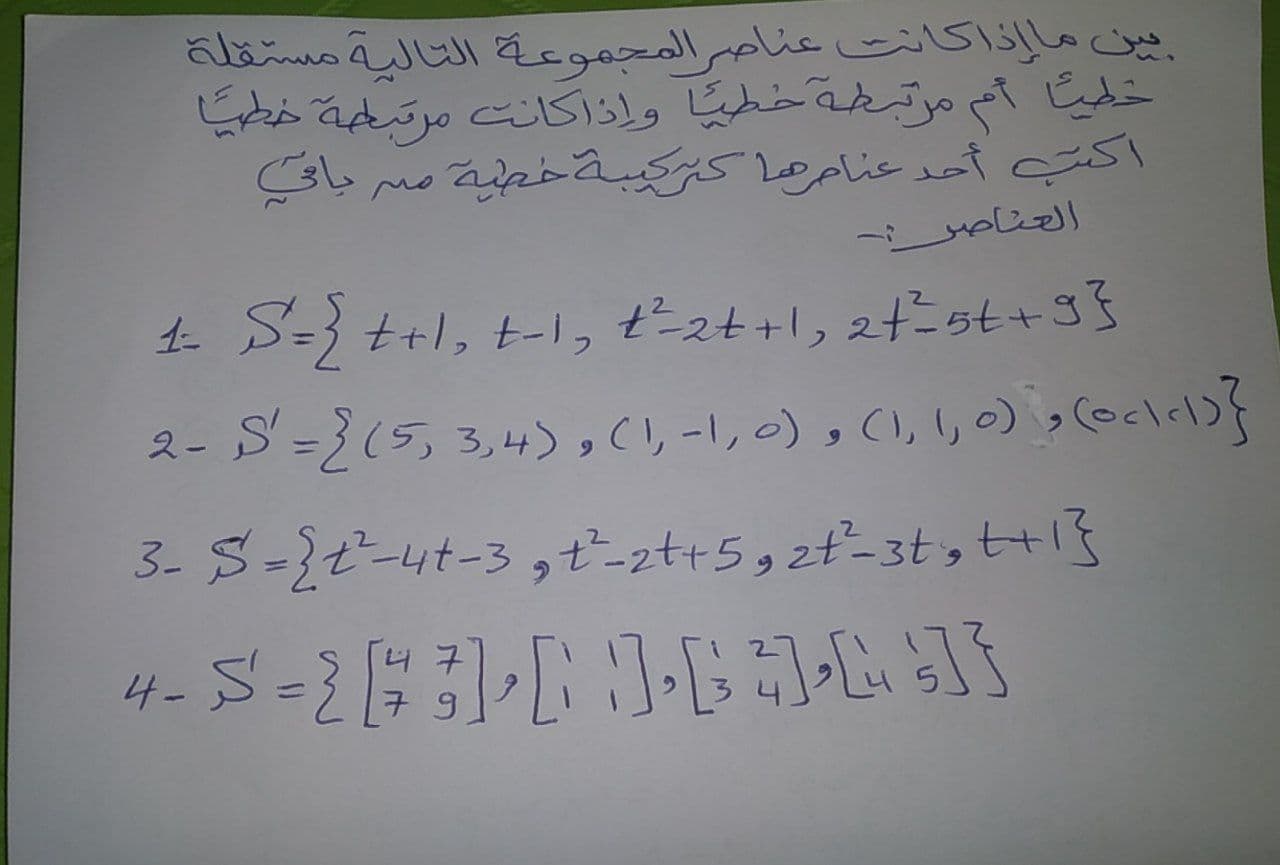 بين ما إذا كانت عناصر المجموعة التالية مستقلة
خطيًا أم مرتبطة خطيًا وإذا كانت مرتبطة خطيًا
اكتب أحد عناصرها كتركيبة خطية من باقي
العناصر :-
1- S={ t+1, t-1, t²-2t+1, 2t²-5t+9}
2- S={(5, 3,4), (1,-1,0), (1,1,0), (0,1,1)}
3- S={t²-4t-3, t²-2t+5, 2t²-3t, t+1}
4- S={[4 7; 7 9], [1 1; 1 1], [1 2; 3 4], [1 1; 4 5]}